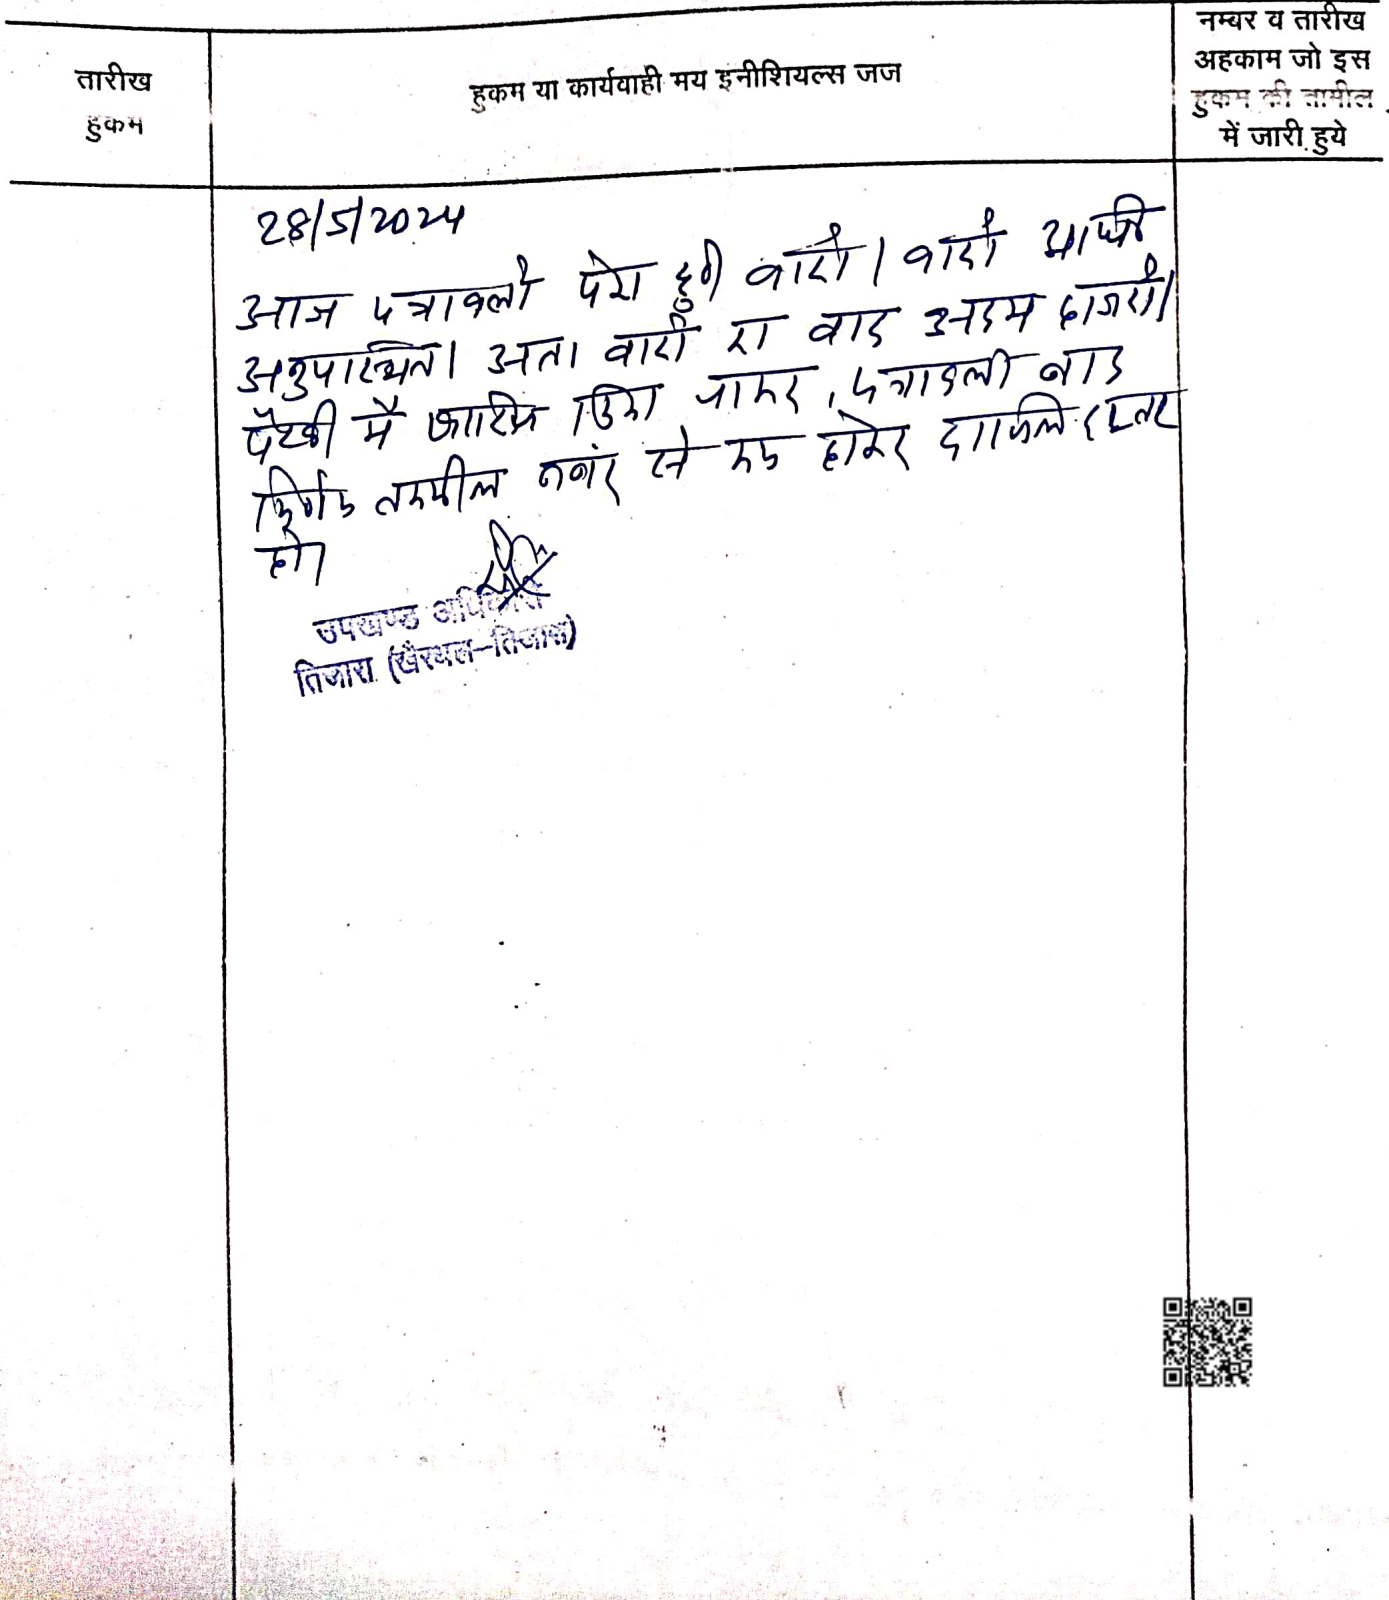 तारीख
हुकम
हुकम या कार्यवाही मय इनीशियल्स जज
नम्बर व तारीख
अहकाम जो इस
हुकम की तामील
में जारी हुये
28/5/2024
आज पत्रावली पेश हुयी वादी। वादी
अनुपस्थित। अतः वादी का वाद अदम हाजरी
पैरवी में खारिज किया जाकर, पत्रावली बाद
तकमील नम्बर से कम होकर दाखिल दफ्तर
हो।
उपखण्ड अधिकारी
तिजारा (खैरथल-तिजारा)